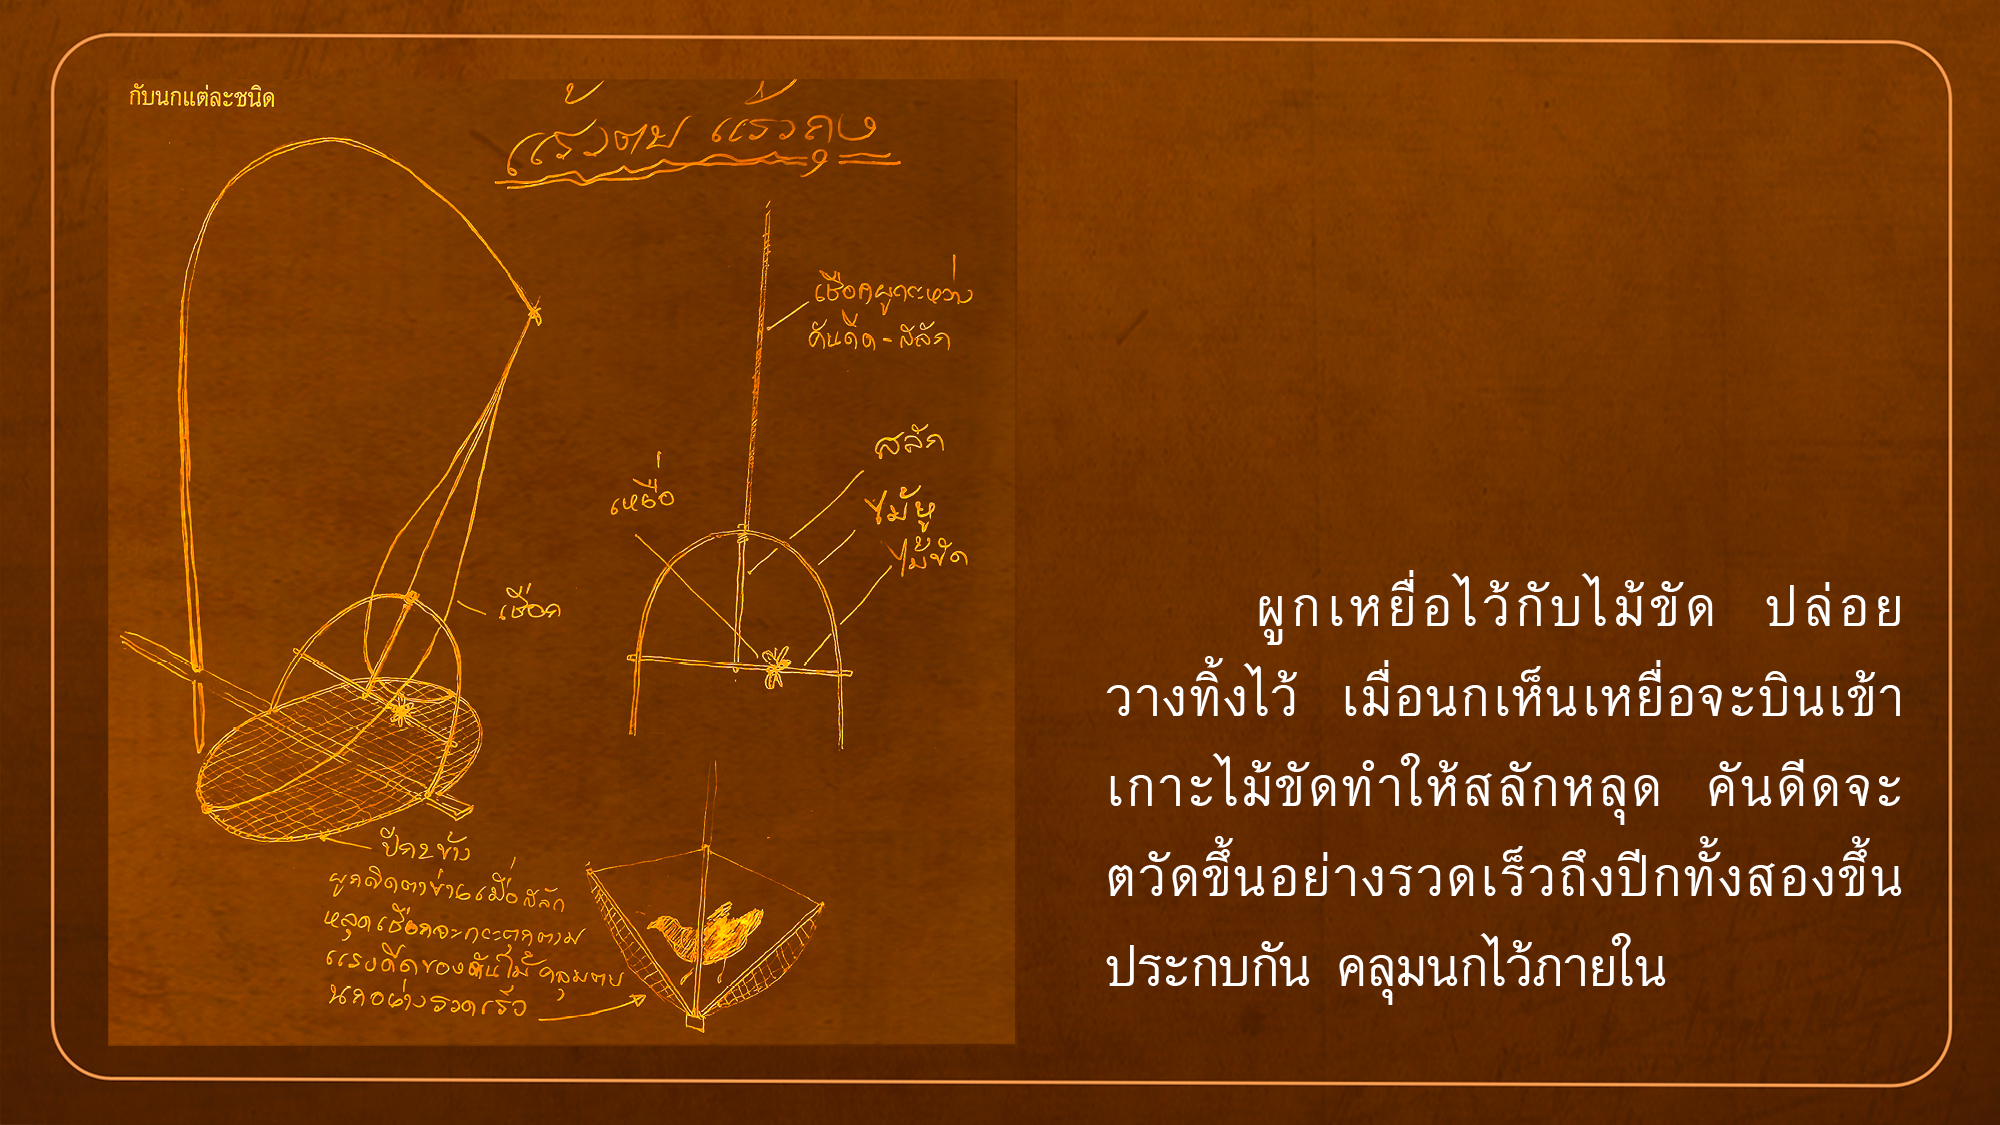 กับนกแต่ละชนิด
แร้วตบ แร้วถุง
เชือกผูกระหว่าง
คันดีด - สลัก
สลัก
เหยื่อ
ไม้หู
ไม้ขัด
เชือก
ปีก 2 ข้าง
ผูกติดตาข่ายเมื่อสลัก
หลุดเชือกจะกระตุกตาม
แรงดีดของคันไม้ คลุมตบ
นกอย่างรวดเร็ว
ผูกเหยื่อไว้กับไม้ขัด ปล่อย
วางทิ้งไว้ เมื่อนกเห็นเหยื่อจะบินเข้า
เกาะไม้ขัดทำให้สลักหลุด คันดีดจะ
ตวัดขึ้นอย่างรวดเร็วถึงปีกทั้งสองขึ้น
ประกบกัน คลุมนกไว้ภายใน